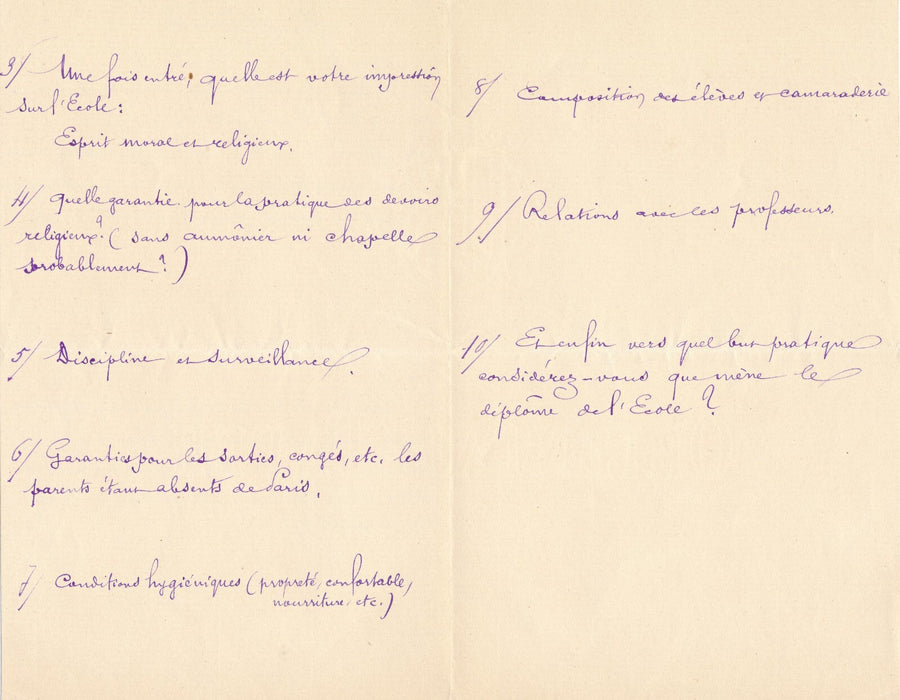 3/ Une fois entré, quelle est votre impression
sur l'Ecole :
Esprit moral et religieux.
4/ Quelle garantie pour la pratique des devoirs
religieux ? ( sans aumônier ni chapelle
probablement ? )
5/ Discipline et surveillance.
6/ Garanties pour les sorties, congés, etc. les
parents étant absents de Paris.
7/ Conditions hygiéniques (propreté, confortable,
nourriture, etc.)
8/ Composition des élèves et camaraderie
9/ Relations avec les professeurs.
10/ Et enfin vers quel but pratique
considérez-vous que mène le
diplôme de l'Ecole ?